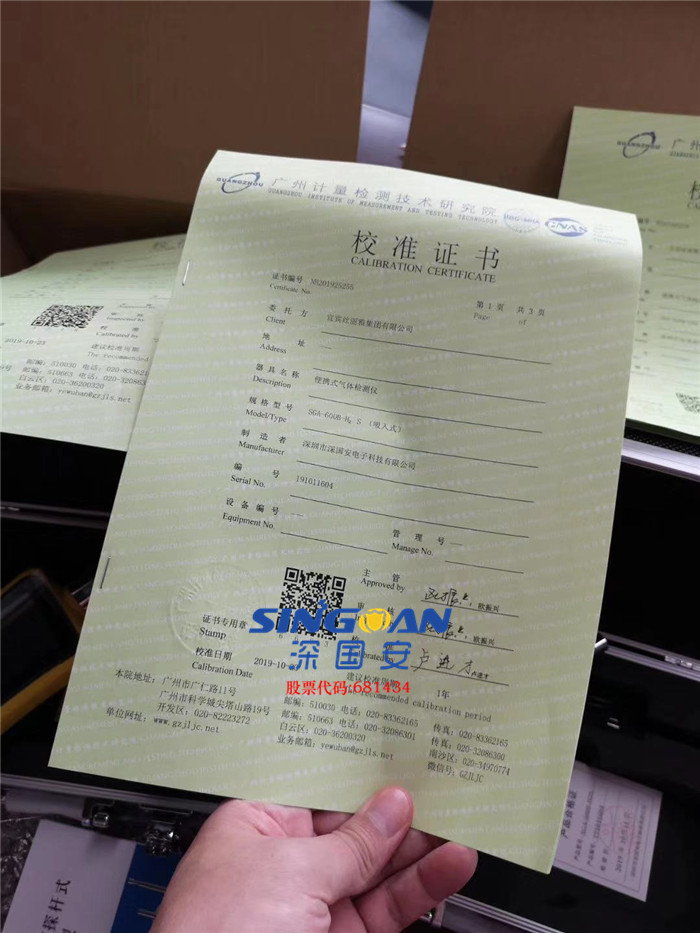 GUANGZHOU
广州计量检测技术研究院
GUANGZHOU INSTITUTE OF MEASUREMENT AND TESTING TECHNOLOGY
CNAS
校准证书
CALIBRATION CERTIFICATE
证书编号
Certificate No.
第 1 页 共 3 页
Page of
委托方
Client
宜宾丝丽雅集团有限公司
地址
Address
器具名称
Description
便携式气体检测仪
规格型号
Model/Type
SGA-600B-H₂S (吸入式)
制造者
Manufacturer
深圳市深国安电子科技有限公司
编号
Serial No.
191011604
设备编号
Equipment No.
管理号
Manage No.
主管
Approved by
欧振兴
欧振兴
SINGOAN
深国安
股票代码:681434
证书专用章
Stamp
校准日期
Calibration Date
2019-10
建议校准周期
1年
recommended calibration period
本院地址: 广州市广仁路11号
邮编: 510030 电话: 020-83362165
传真: 020-83362165
广州市科学城尖塔山路19号
邮编: 510663 电话: 020-32086301
传真: 020-32086300
开发区: 020-82223272
白云区: 020-36200320
南沙区: 020-34970774
单位网址: www.gzjljc.net
业务邮箱: yewuban@gzjls.net
微信号: GZJLJC
2019-10-25
校准
Calibrated by
建议校准周期
The recommended
邮编: 510030 电话: 020-83362
邮编: 510663 电话: 020-32086
白云区: 020-36200320
业务邮箱: yewuban@gzjls.net
GUANGZHOU
广州
产品合格证
探杆式